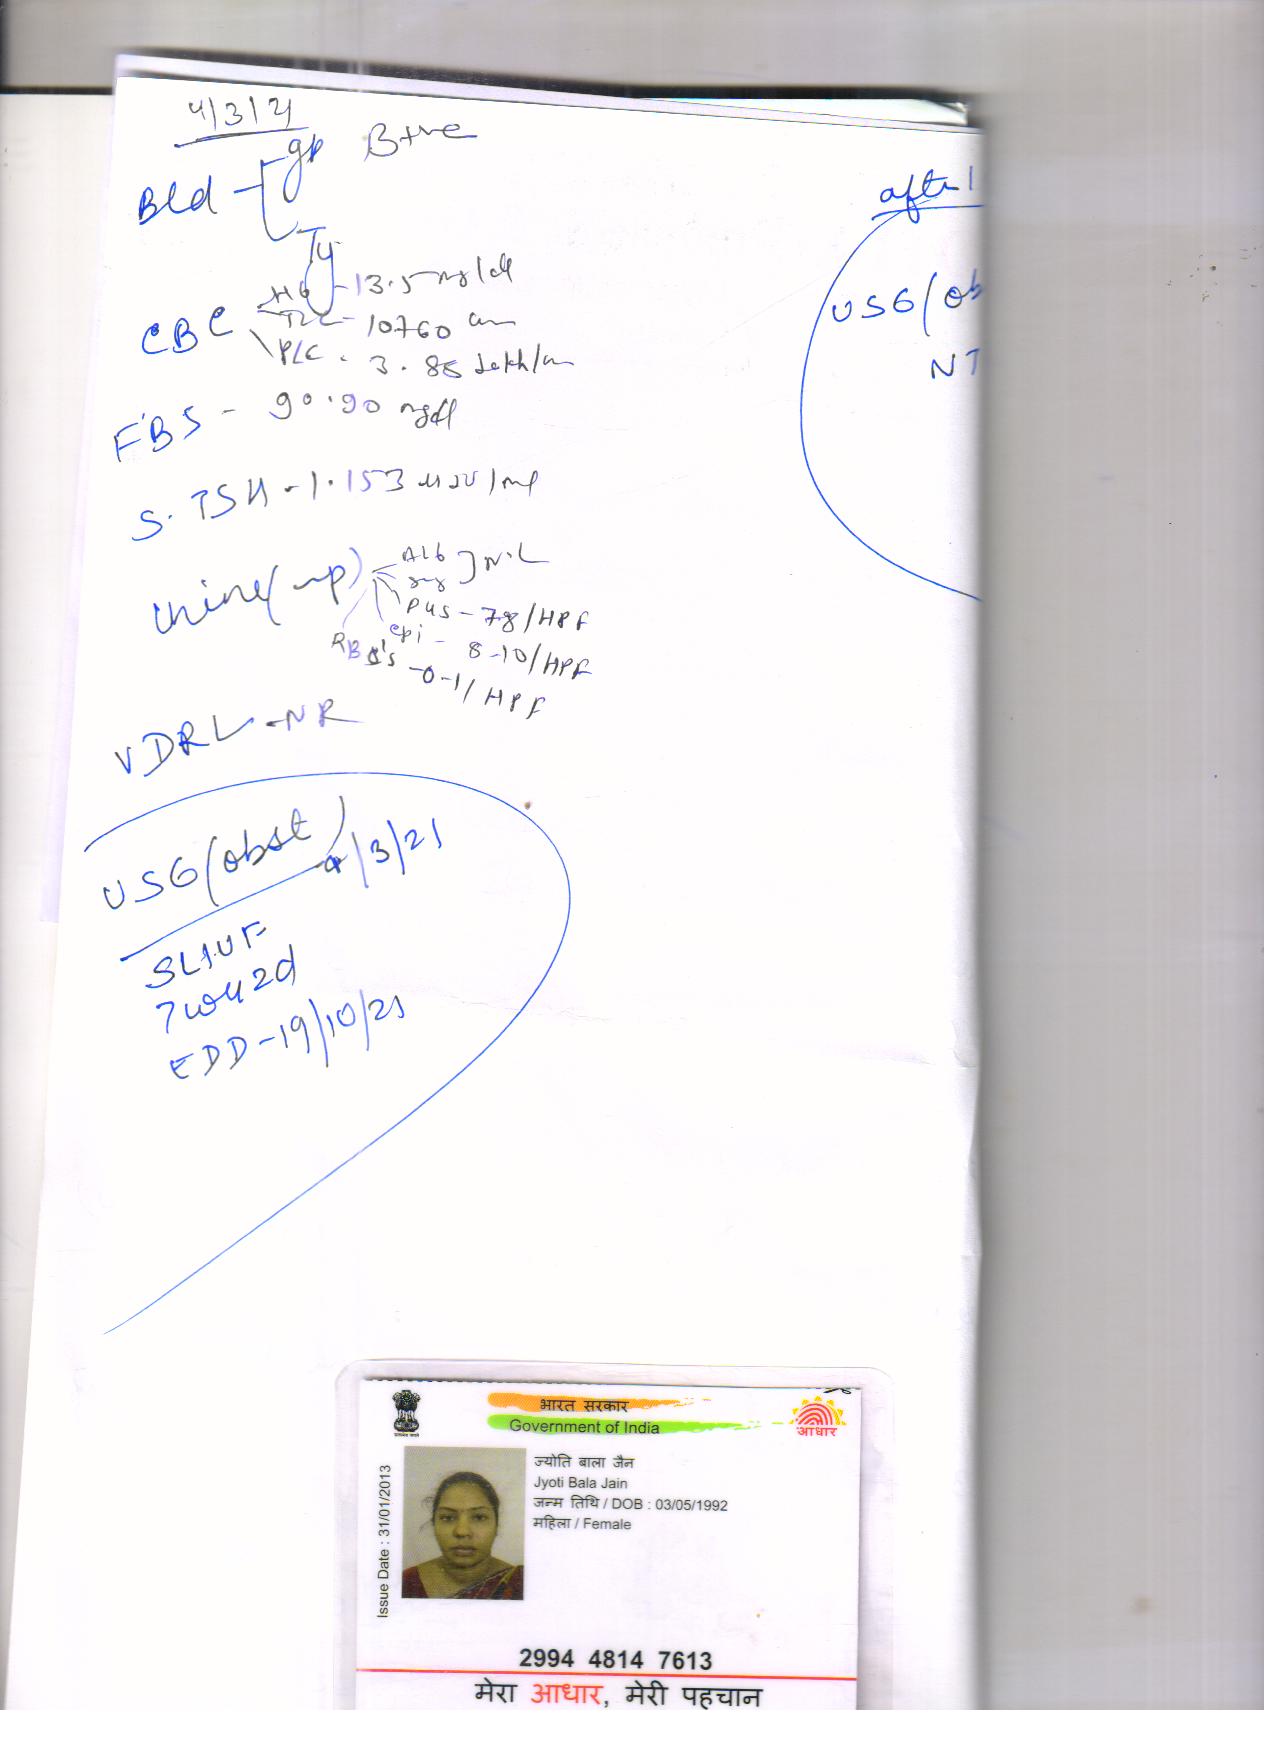 4/3/21
Bld gp B+ve
Ty
CBC Hb - 13.5 mg/dl
TLC - 10760 cm
PLC - 3.85 Lakh/cm
FBS - 90.90 mg/dl
S. TSH - 1.153 uIU/ml
Urine( ) Alb
Sug ] NiL
PUS - 7-8/HPF
epi - 8-10/HPF
RBC's - 0-1/HPF
VDRL - NR
USG (obst) /3/21
SLIUF
7wk 2d
EDD - 19/10/21
after 1
USG (ob
NT
भारत सरकार
Government of India
आधार
Issue Date : 31/01/2013
ज्योति बाला जैन
Jyoti Bala Jain
जन्म तिथि / DOB : 03/05/1992
महिला / Female
2994 4814 7613
मेरा आधार, मेरी पहचान